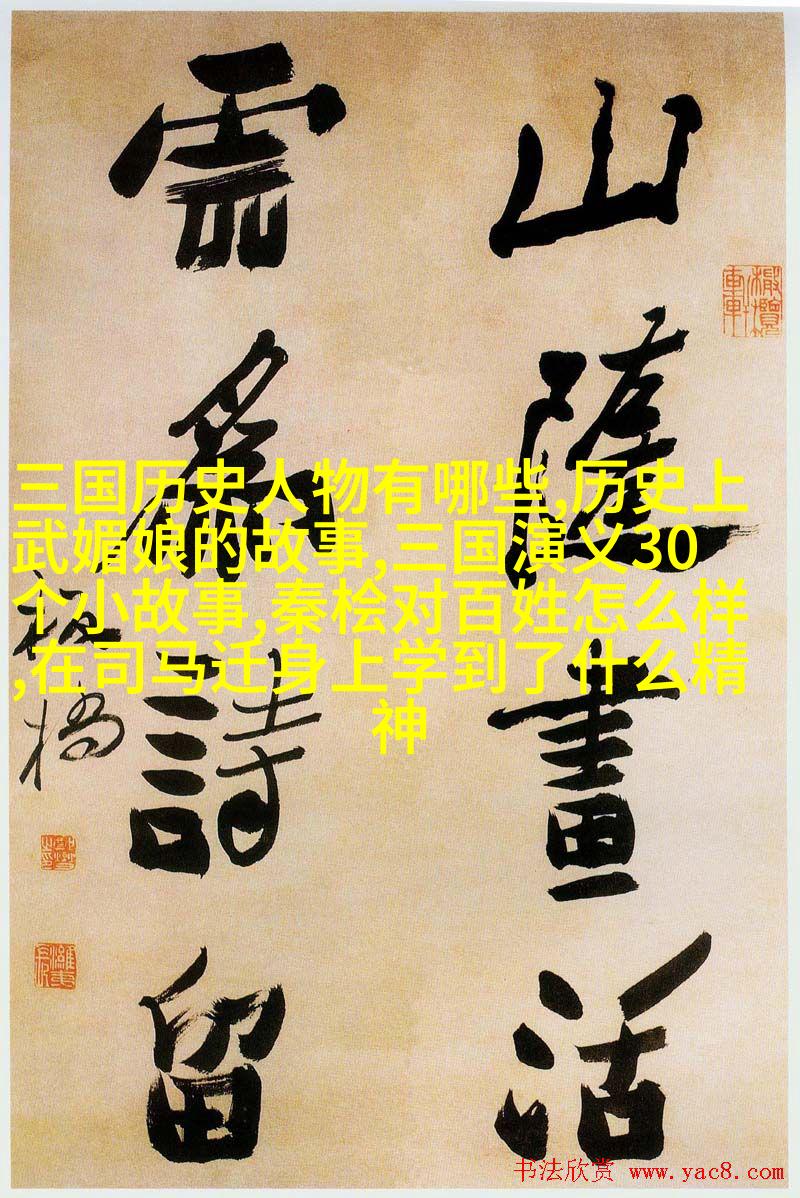 山隨畫活
雲為詩留
板橋
三国历史人物有哪些,历史上
武媚娘的故事,三国演义30
个小故事,秦桧对百姓怎么样
,在司马迁身上学到了什么精
神
书法欣赏 www.yac8.com